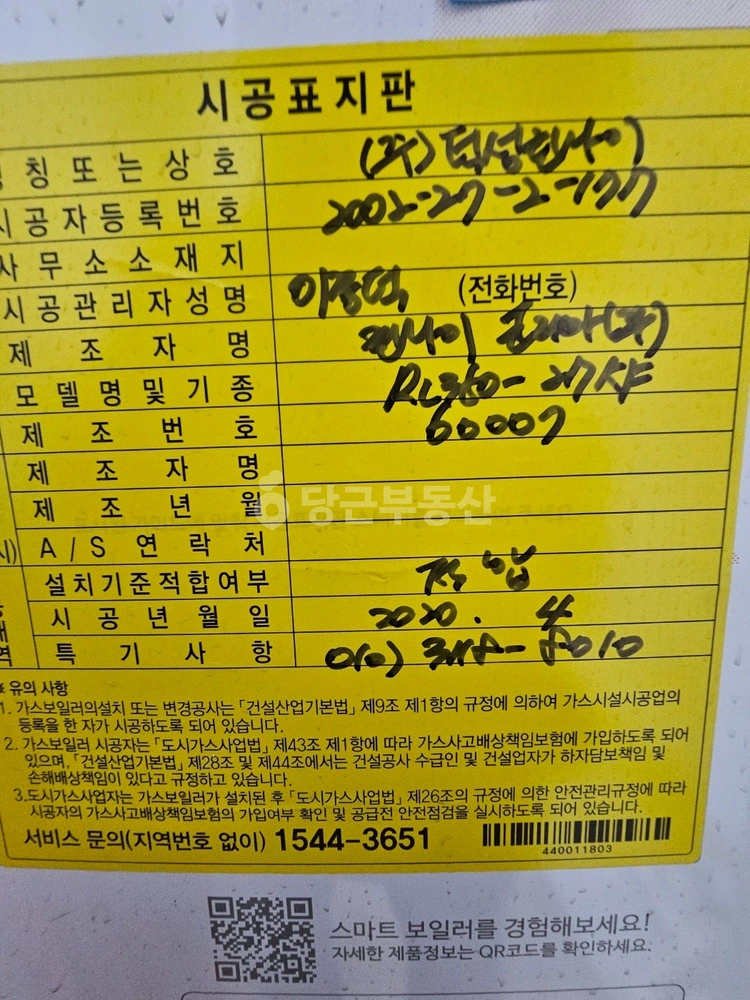 시공표지판
칭 또는 상호 (주)
시공자등록번호 2002-27-2-177
사무소소재지
시공관리자성명 (전화번호)
제조자명 린나이 코리아(주)
모델명및기종 RL360-27KF
제조번호 60007
제조자명
제조년월
당근부동산
A/S연락처
설치기준적합여부 적합
시공년월일 2020. 4
특기사항
* 유의 사항
1. 가스보일러의설치 또는 변경공사는「건설산업기본법」제9조 제1항의 규정에 의하여 가스시설시공업의
등록을 한 자가 시공하도록 되어 있습니다.
2. 가스보일러 시공자는「도시가스사업법」제43조 제1항에 따라 가스사고배상책임보험에 가입하도록 되어
있으며,「건설산업기본법」제28조 및 제44조에서는 건설공사 수급인 및 건설업자가 하자담보책임 및
손해배상책임이 있다고 규정하고 있습니다.
3.도시가스사업자는 가스보일러가 설치된 후「도시가스사업법」제26조의 규정에 의한 안전관리규정에 따라
시공자의 가스사고배상책임보험의 가입여부 확인 및 공급전 안전점검을 실시하도록 되어 있습니다.
서비스 문의(지역번호 없이) 1544-3651
440011803
스마트 보일러를 경험해보세요!
자세한 제품정보는 QR코드를 확인하세요.